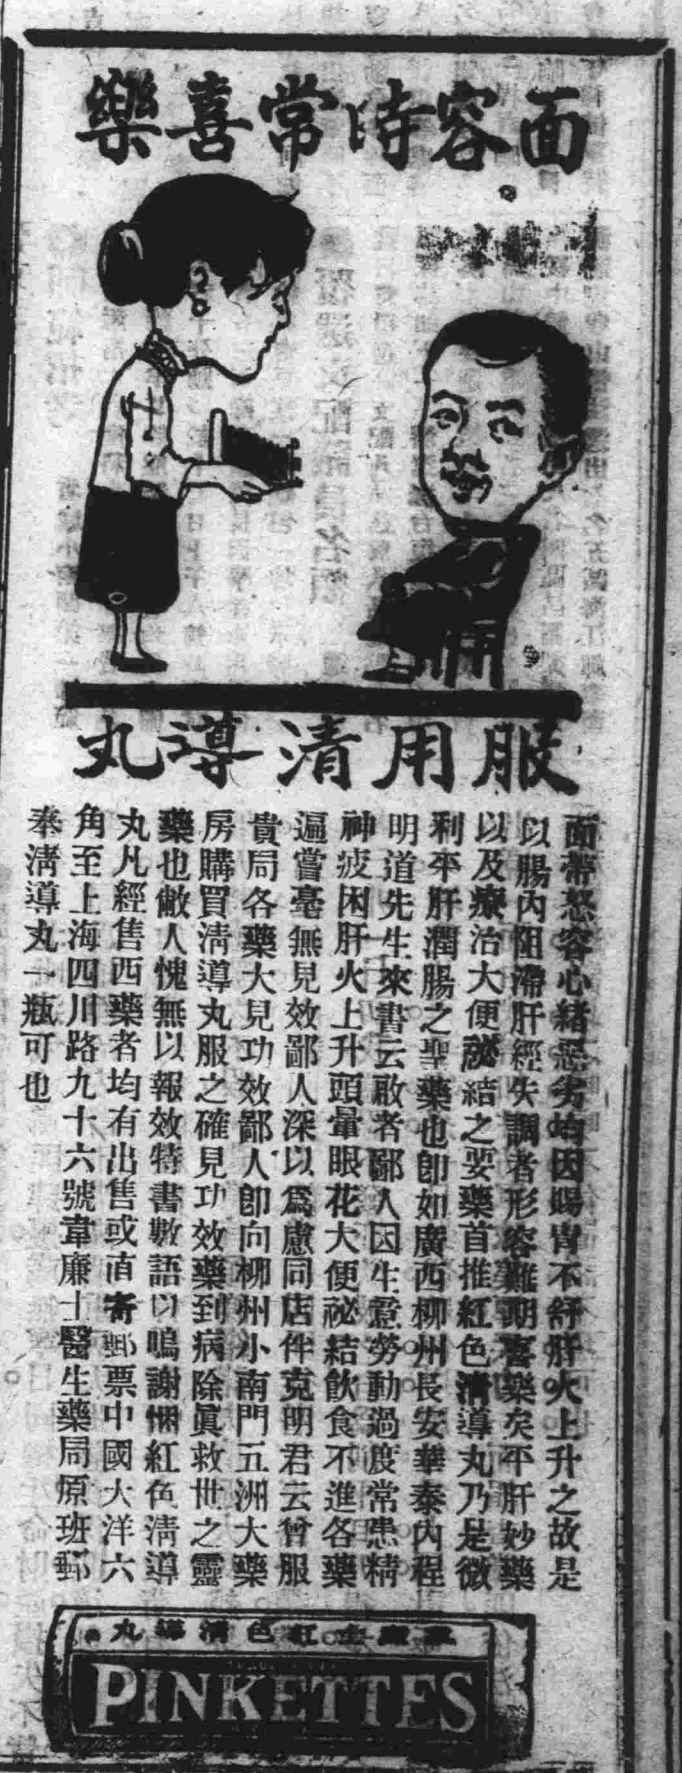 面容時常喜樂
服用清導丸
面帶怒容心緒惡劣均因腸胃不舒肝火上升之故是
以腸內阻滯肝經失調者形容難期喜樂矣平肝妙藥
以及療治大便祕結之要藥首推紅色清導丸乃是微
利平肝潤腸之聖藥也卽如廣西柳州長安華泰內程
明道先生來書云敬者鄙人因生意勞動過度常患精
神疲困肝火上升頭暈眼花大便祕結飮食不進各藥
遍嘗毫無見效鄙人深以爲慮同店伴克明君云曾服
貴局各藥大見功效鄙人卽向柳州小南門五洲大藥
房購買淸導丸服之確見功效藥到病除眞救世之靈
藥也敝人愧無以報效特書數語以鳴謝悃紅色淸導
丸凡經售西藥者均有出售或直寄郵票中國大洋六
角至上海四川路九十六號韋廉士醫生藥局原班郵
奉淸導丸一瓶可也
韋廉士紅色清導丸
PINKETTES